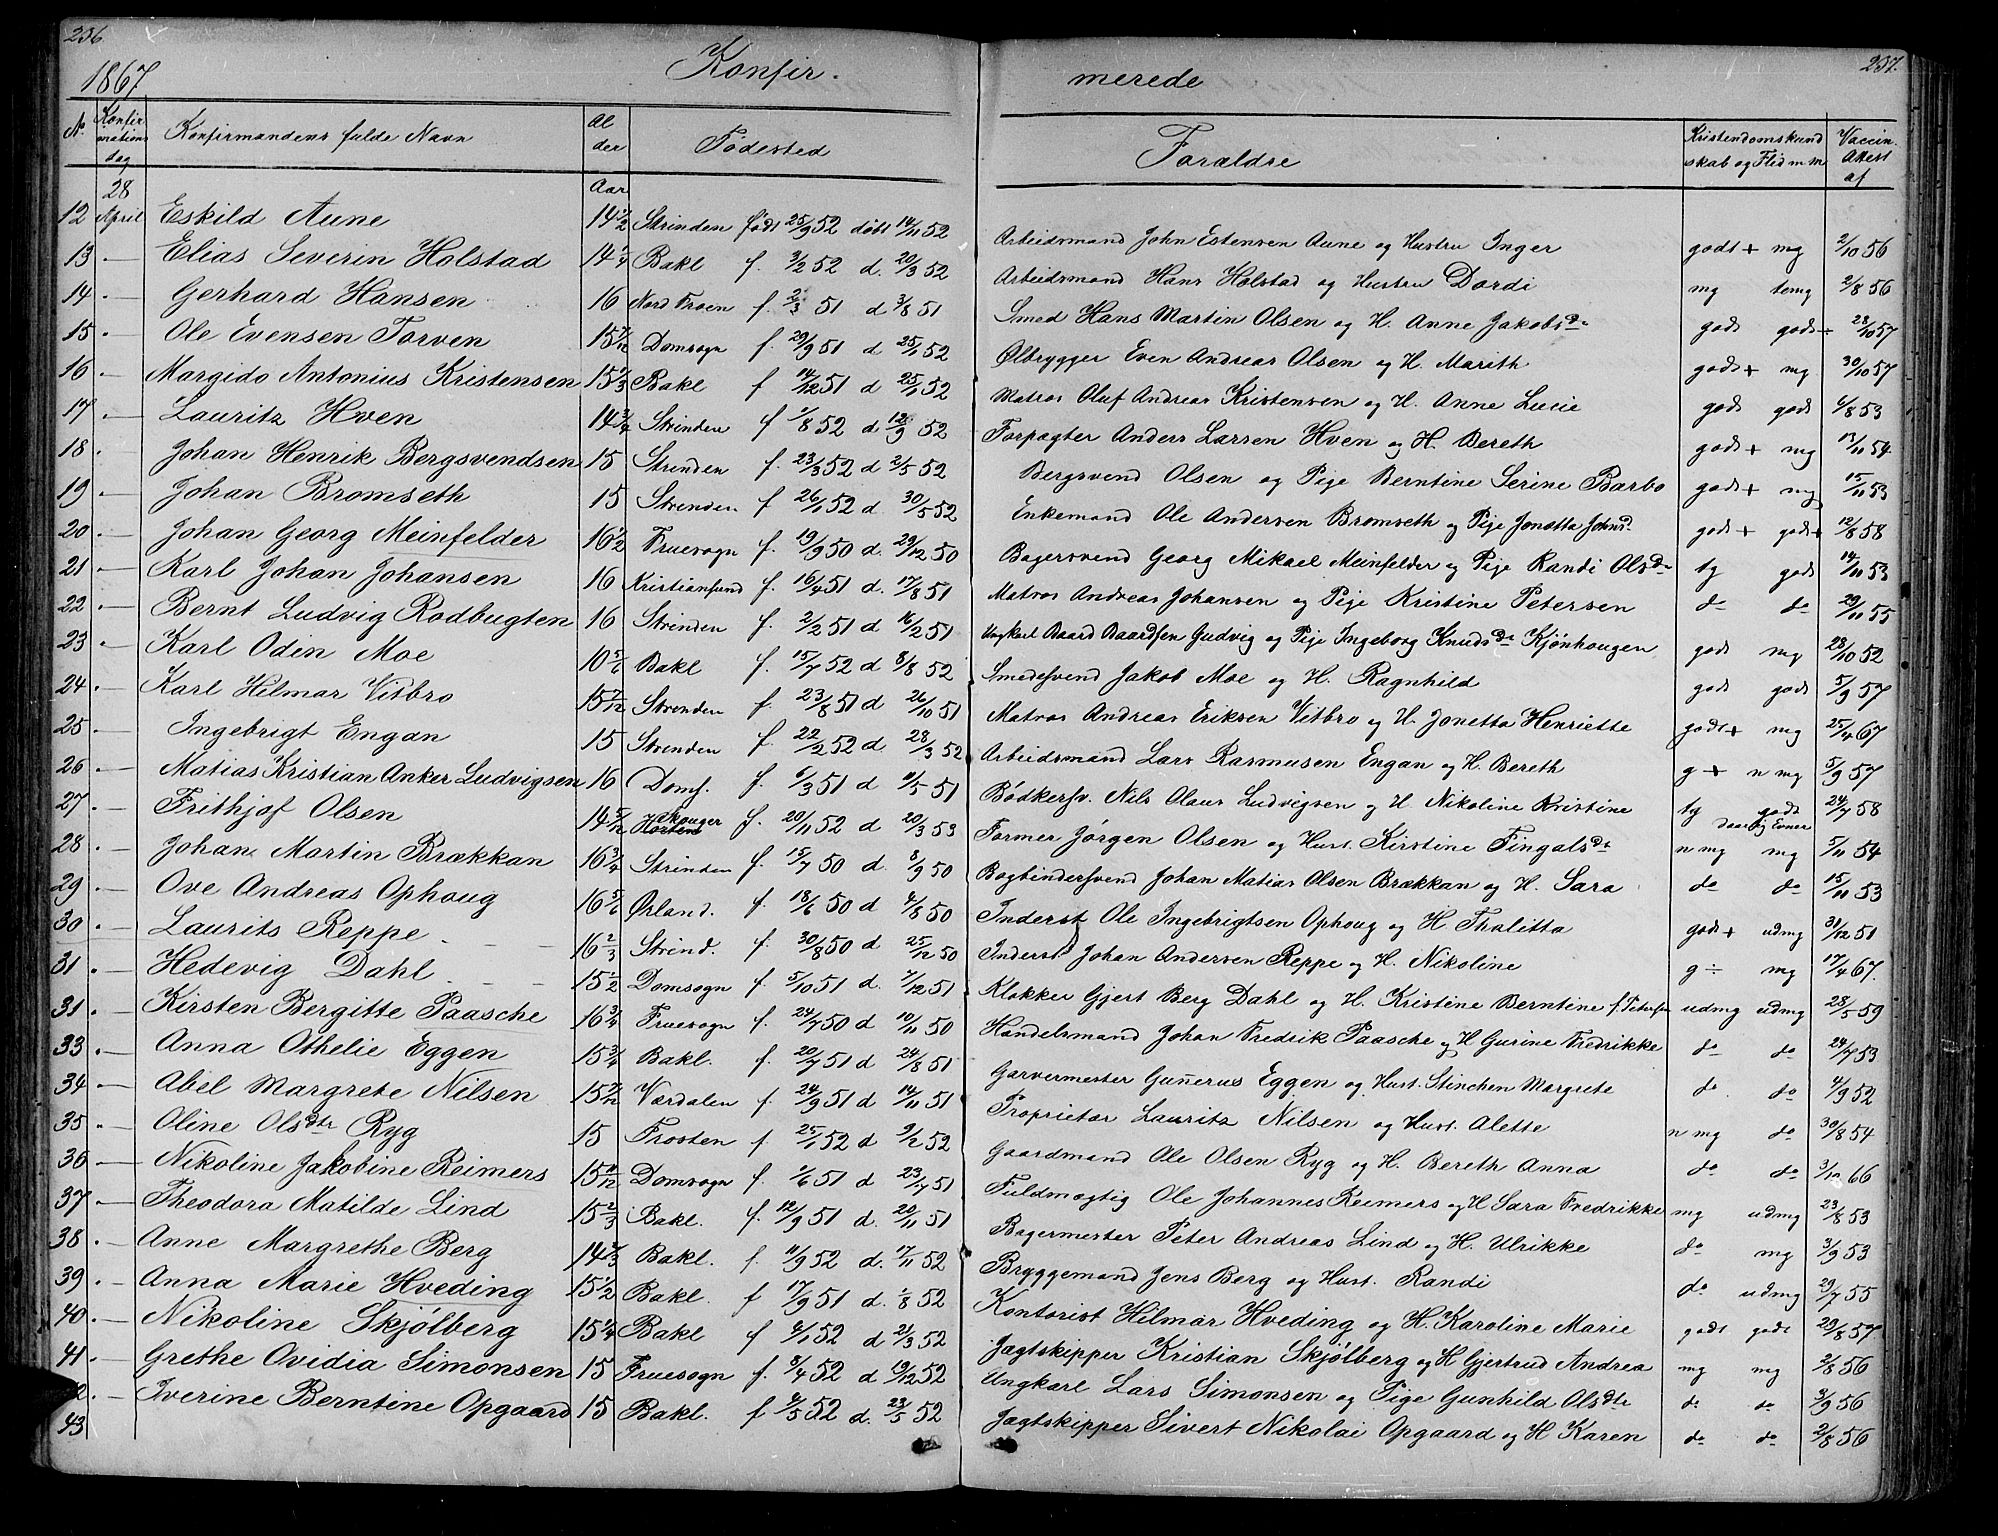 236.
237.
1867.
Konfir-
merede
No.
Konfir-
mations
dag
Konfirmandens fulde Navn
Al
der
Fødested
Forældre
Kristendomskund
skab og Flid m m
Vaccin.
Attest
af
28
April
Aar
12 Eskild Aune 14 1/2 Strinden født 25/9 52 døbt 14/11 52 Arbeidsmand John Estensen Aune og Hustru Inger godt + mg 2/10 56
13 . — Elias Severin Holstad 14 1/4 Bakl f. 3/2 52 d. 20/3 52 Arbeidsmand Hans Holstad og Hustru Dordi mg temg 2/8 56
14 . — Gerhard Hansen 16 Nord Froen f. 2/3 51 d 3/8 51 Smed Hans Martin Olsen og H. Anne Jakobsdr godt godt + 28/10 57
15 . — Ole Evensen Torven 15 7/12 Domsogn f. 20/9 51 d 25/1 52 Ølbrygger Even Andreas Olsen og H. Marith godt + mg 30/10 57
16 . — Margido Antonius Kristensen 15 1/3 Bakl f 14/12 51 d 25/1 52 Matros Oluf Andreas Kristensen og H. Anne Lucie godt godt 4/8 53
17 . — Lauritz Hven 14 3/4 Strinden f 1/8 52 d 12/9 52 Forpagter Anders Larsen Hven og H. Bereth godt + mg 13/11 54
18 . — Johan Henrik Bergsvendsen 15 Strinden f. 23/3 52 d 2/5 52 Bergsvend Olsen og Pige Berntine Serine Barbo godt + mg 15/11 53
19 . — Johan Bromseth 15 Strinden f 26/1 52 d. 30/5 52 Enkemand Ole Andersen Bromseth og Pige Jonetta Johnsd. godt + godt + 12/8 58
20 . — Johan Georg Meinfelder 16 1/2 Fruesogn f. 19/9 50 d. 29/12 50 Bagersvend Georg Mikael Meinfelder og Pige Randi Olsdr tg godt 14/11 53
21 . — Karl Johan Johansen 16 Kristiansund f. 16/4 51 d. 17/8 51 Matros Andreas Johansen og Pige Kristine Petersen do do 29/11 55
22 . — Bernt Ludvig Rodbugten 16 Strinden f. 2/2 51 d 16/2 51 Ungkarl Baard Baardsen Gudvig og Pige Ingeborg Knudsdr Kjønhougen godt mg 28/10 52
23 . — Karl Odin Moe 10 5/6 Bakl f. 15/7 52 d 8/8 52 Smedesvend Jakob Moe og H. Ragnhild godt godt 5/9 57
24 . — Karl Hilmar Vitbro 15 7/12 Strinden f. 23/8 51 d 26/10 51 Matros Andreas Eriksen Vitbro og H. Jonetta Henriette godt + mg 25/4 67
25 — Ingebrigt Engan 15 Strinden f. 22/2 52 d 28/3 52 Arbeidsmand Lars Rasmusen Engan og H. Bereth g + n mg 5/9 57
26 . — Matias Kristian Anker Ludvigsen 16 Doms. f. 6/3 51 d 9/5 51 Bødkersv. Nils Olaus Ludvigsen og H Nikoline Kristine tg godt 24/7 58
daarlig Evner
27 . — Frithjof Olsen 14 5/12 Skouger Horten f. 20/11 52 d 20/3 53 Former Jørgen Olsen og Hust. Kirstine Fingalsdr n mg mg 5/11 54
28 . — Johan Martin Brækkan 16 3/4 Strinden f. 15/7 50 d. 8/9 50 Bogbindersvend Johan Matias Olsen Brækkan og H. Sara do do 15/11 53
29 . — Ove Andreas Ophoug 16 5/6 Ørland. f. 18/6 50 d 4/8 50 Inderst Ole Ingebrigtsen Ophoug og H Thalitta godt + udmg 31/12 51
30 . — Laurits Reppe 16 2/3 Strind. f. 30/8 50 d 25/12 50 Inderst Johan Andersen Reppe og H. Nikoline g ÷ mg 17/4 67.
31 . — Hedevig Dahl 15 1/2 Domsogn f. 5/10 51 d 7/12 51 Klokker Gjert Berg Dahl og H. Kristine Berntine f. Petersen udmg udmg 28/5 59
31 . — Kirsten Bergitte Paasche 16 3/4 Fruesogn f. 24/7 50 d 10/11 50 Handelsmand Johan Fredrik Paasche og H Gurine Fredrikke do do 24/7 53
33 . — Anna Othelie Eggen 15 3/4 Bakl. f. 20/7 51 d 24/8 51 Garvermester Gunnerus Eggen og Hust. Stinchen Margrete do. do 4/9 52
34 . — Abel Margrete Nilsen 15 7/12 Værdalen f. 24/9 51 d 14/11 51 Proprietær Lauritz Nilsen og Hust. Alette n mg do 30/8 54
35 . — Oline Olsdtr Ryg 15 Frosten f. 25/1 52 d 9/2 52 Gaardmand Ole Olsen Ryg og H. Bereth Anna do do 3/10 66
36 — Nikoline Jakobine Reimers 15 10/12 Domsogn f. 1/6 51 d. 23/7 51 Fuldmægtig Ole Johannes Reimers og H Sara Fredrikke mg udmg 23/8 53
37 . — Theodora Matilde Lind 15 2/3 Bakl. f. 12/9 51 d. 20/11 51 Bagermester Peter Andreas Lind og H. Ulrikke do mg 3/9 53
38 . — Anne Margrethe Berg 14 2/3 Bakl. f. 11/9 52 d. 17/11 52 Bryggemand Jens Berg og Hust. Randi do udmg 29/7 55
39 . — Anna Marie Hveding 15 1/2 Bakl. f 17/9 51 d. 1/8 52 Kontorist Hilmar Hveding og H. Karoline Marie godt godt 29/8 57
40 . — Nikoline Skjølberg 15 1/4 Bakl f 4/1 52 d 21/3 52 Jagtskipper Kristian Skjølberg og H Gjertrud Andrea mg mg 2/8 56
41 . — Grethe Ovidia Simonsen 15 Fruesogn f. 8/4 52 d 19/12 52 Ungkarl Lars Simonsen og Pige Gunhild Olsdtr do do 3/9 56
42 . — Iverine Berntine Opgaard 15 Bakl. f 4/5 52 d. 23/5 52 Jagtskipper Sivert Nikolai Opgaard og H Karen do do 2/8 56
43